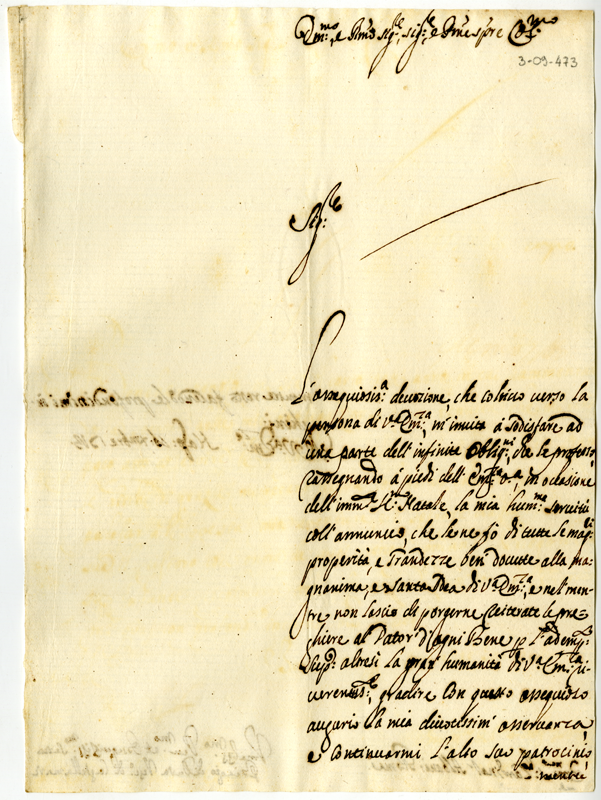 Em:mo, e Rmo Sig:re, Sig:re e Pne Spre Col:mo
3-09-473
Sig:re
L'ossequiosis:a devozione, che coltivo verso la
persona di V.a Em:za m'invita à sodisfare ad
una parte dell'infinite oblig:ni, che le professo
rassegnando à piedi dell'Em:za V.a, in occasione
dell'imm:te SS.mo Natale, la mia hum:ma servitù
coll'annuncio, che le ne fò di tutte le mag:ri
properità, e Grandezze ben dovute alla ma=
gnanima, e Santa Idea di V.a Em:za, e nel men=
tre non lascio di porgerne reiterate le pre=
ghiere al Dator d'ogni Bene p l'ademp:to
Sup:co altresì la gran humanità di V.a Em:za ri=
verentem:te, gradire con questo ossequioso
augurio la mia divotissim' osservanza
e continuarmi l'alto suo patrocinio
mentre